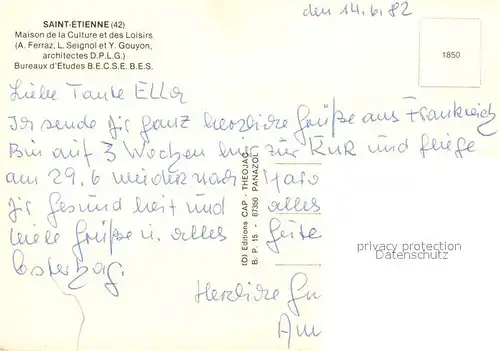 SAINT-ÉTIENNE (42)
Maison de la Culture et des Loisirs
(A. Ferraz, L. Seignol et Y. Gouyon,
architectes D.P.L.G.)
Bureaux d'Etudes B.E.C.S.E. B.E.S.
den 14.6.82
1850
Liebe Tante Ella
Ich sende dir ganz herzliche Grüße aus Frankreich
Bin auf 3 Wochen hier zur Kur und fliege
am 29.6 wieder nach
dir Gesundheit und alles
viele Grüße u. alles Gute
Herzliche
(D) Editions CAP - THEOJAC
B. P. 15 - 87350 PANAZOL
privacy protection
Datenschutz